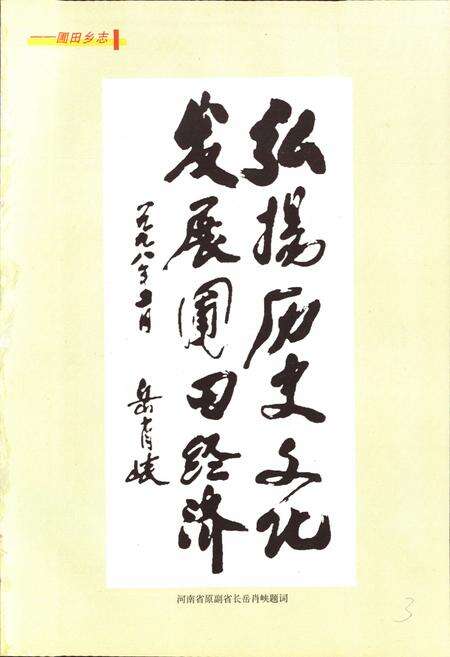 ——圃田乡志
弘揚历史文化
发展圃田经济
一九九八年二月
岳肖峡
河南省原副省长岳肖峡题词
3